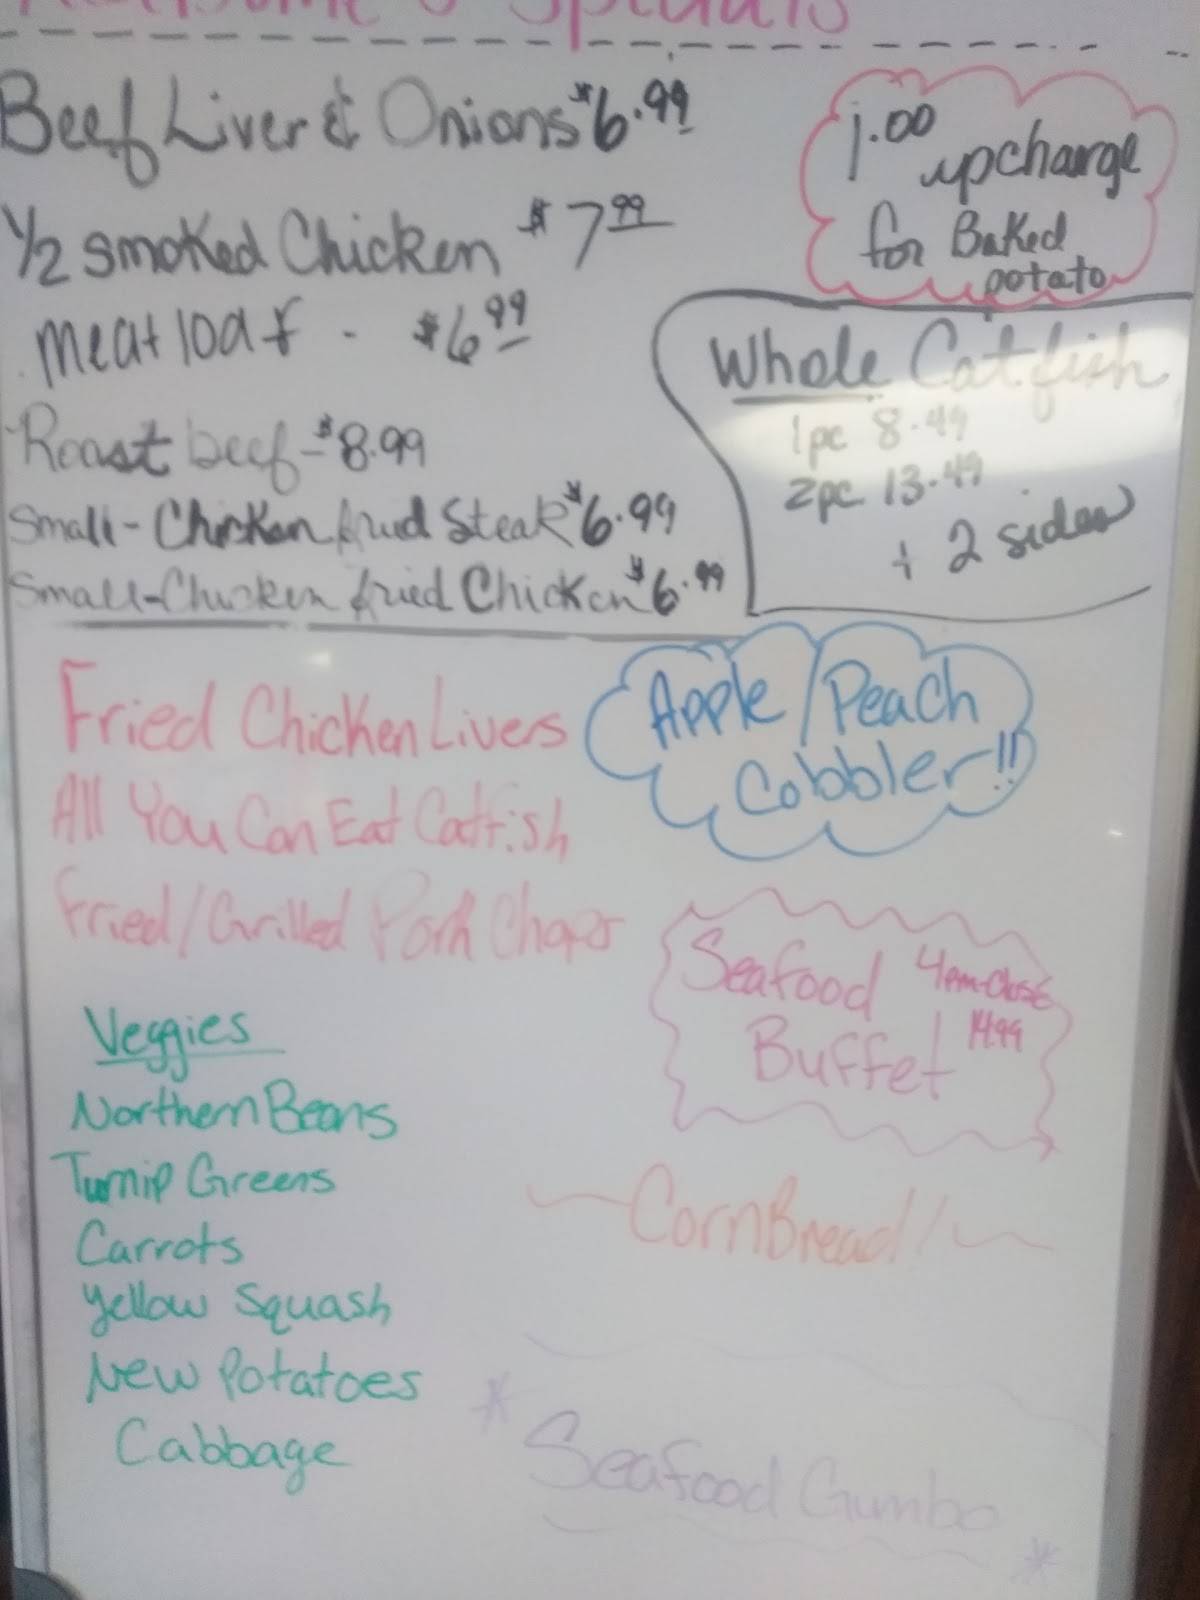 Specials
Beef Liver & Onions $6.99
1/2 Smoked Chicken $7.99
meatloaf - $6.99
Roast beef - $8.99
Small-Chicken fried Steak $6.99
Small-Chicken fried Chicken $6.99
1.00
upcharge
for Baked
potato
Whole Catfish
1pc 8.49
2pc 13.49
+ 2 sides
Fried Chicken Livers
All You Can Eat Catfish
Fried/Grilled Pork Chops
Apple/Peach
Cobbler!!
Seafood 4pm-Close
Buffet 14.99
Veggies
Northern Beans
Turnip Greens
Carrots
Yellow Squash
New Potatoes
Cabbage
CornBread!
Seafood Gumbo